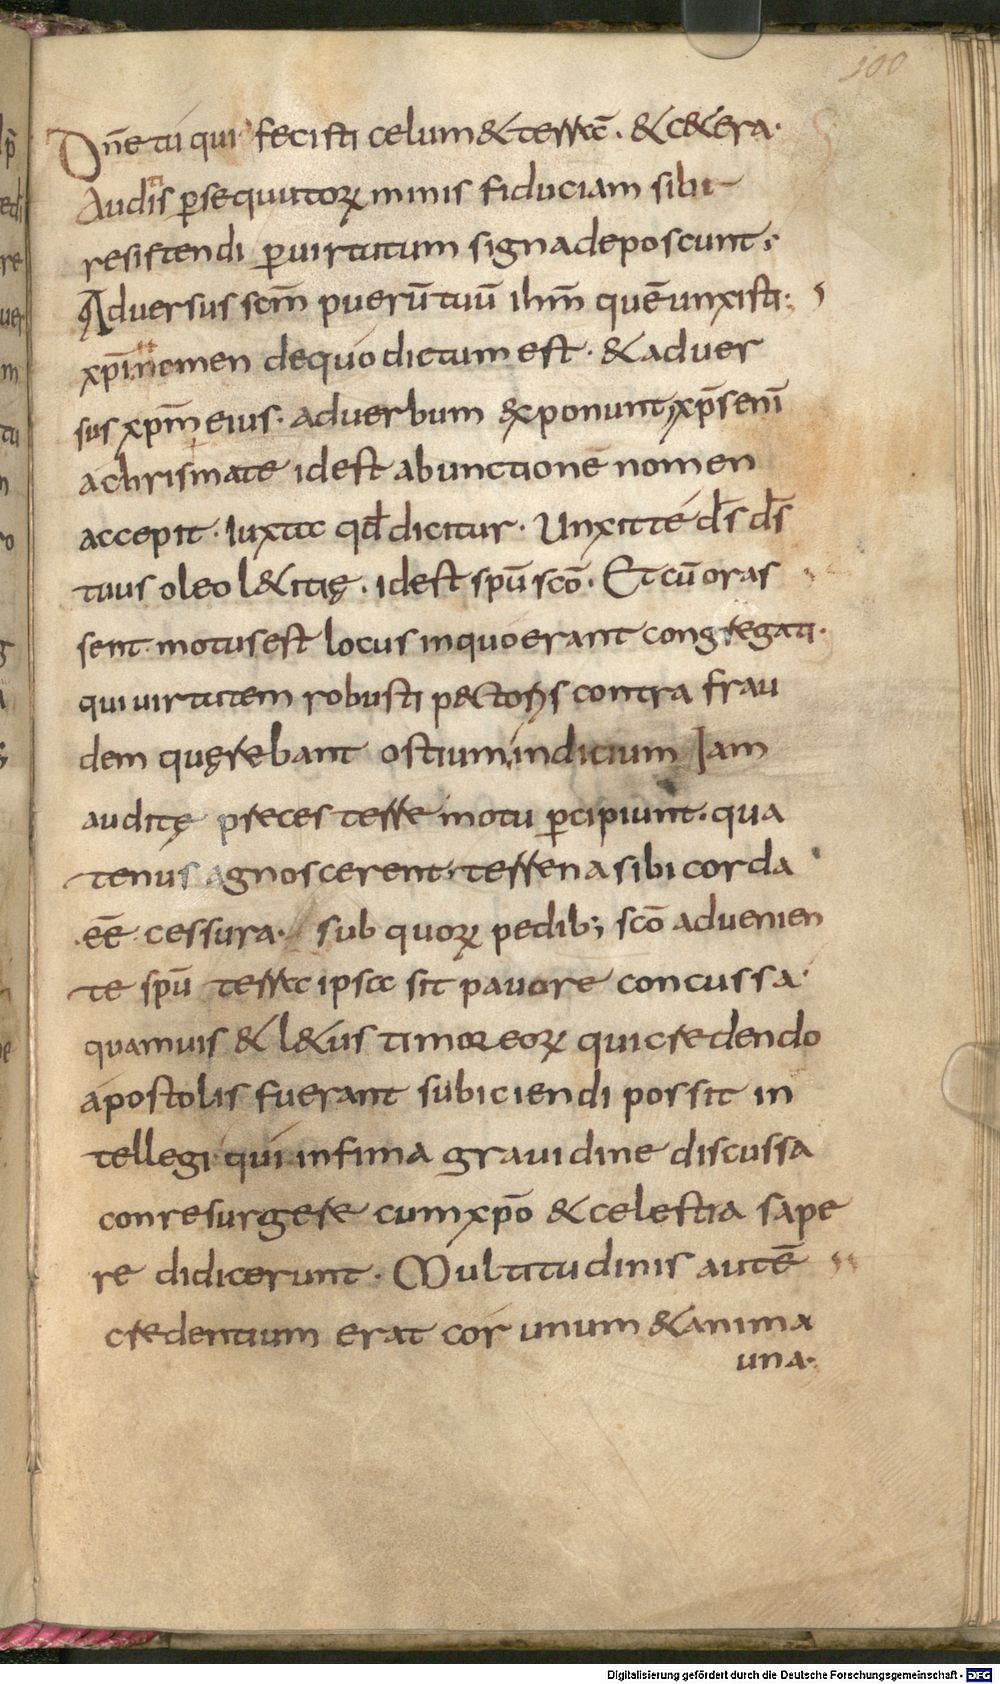 100
Dn̄e tu qui fecisti celum & terrā. & cetera.
Audis ꝑsequutoꝝ minis fiduciam sibi
resistendi ꝑ uirtutum signa deposcunt;
Aduersus scm̄ puerū tuū ihm̄ quē unxisti;
xp̄i nomen de quo dictum est. & aduer
sus xpm̄ eius. ad uerbum exponunt xp̄s enī
a chrismate id est ab unctione nomen
accepit. Iuxta qd̄ dicitur. Unxit te ds̄ ds̄
tuus oleo l&itię. id est spū scō. Et cū oras
sent motus est locus in quo erant congregati.
qui uirtutem robusti pectoris contra frau
dem quęrebant ostium indicium Iam
auditę preces terre motu ꝑcipiunt. qua
tenus agnoscerent. terrena sibi corda
ēē cessura. sub quoꝝ pedib; scō aduenien
te spū terra ipsa sit pauore concussa.
quamuis & l&us timor eoꝝ qui credendo
apostolis fuerant subiciendi possit in
tellegi qui infima grauidine discussa
conresurgere cum xpō & celestia sape
re didicerunt. Multitudinis autē
credentium erat cor unum & anima
una.
Digitalisierung gefördert durch die Deutsche Forschungsgemeinschaft - DFG